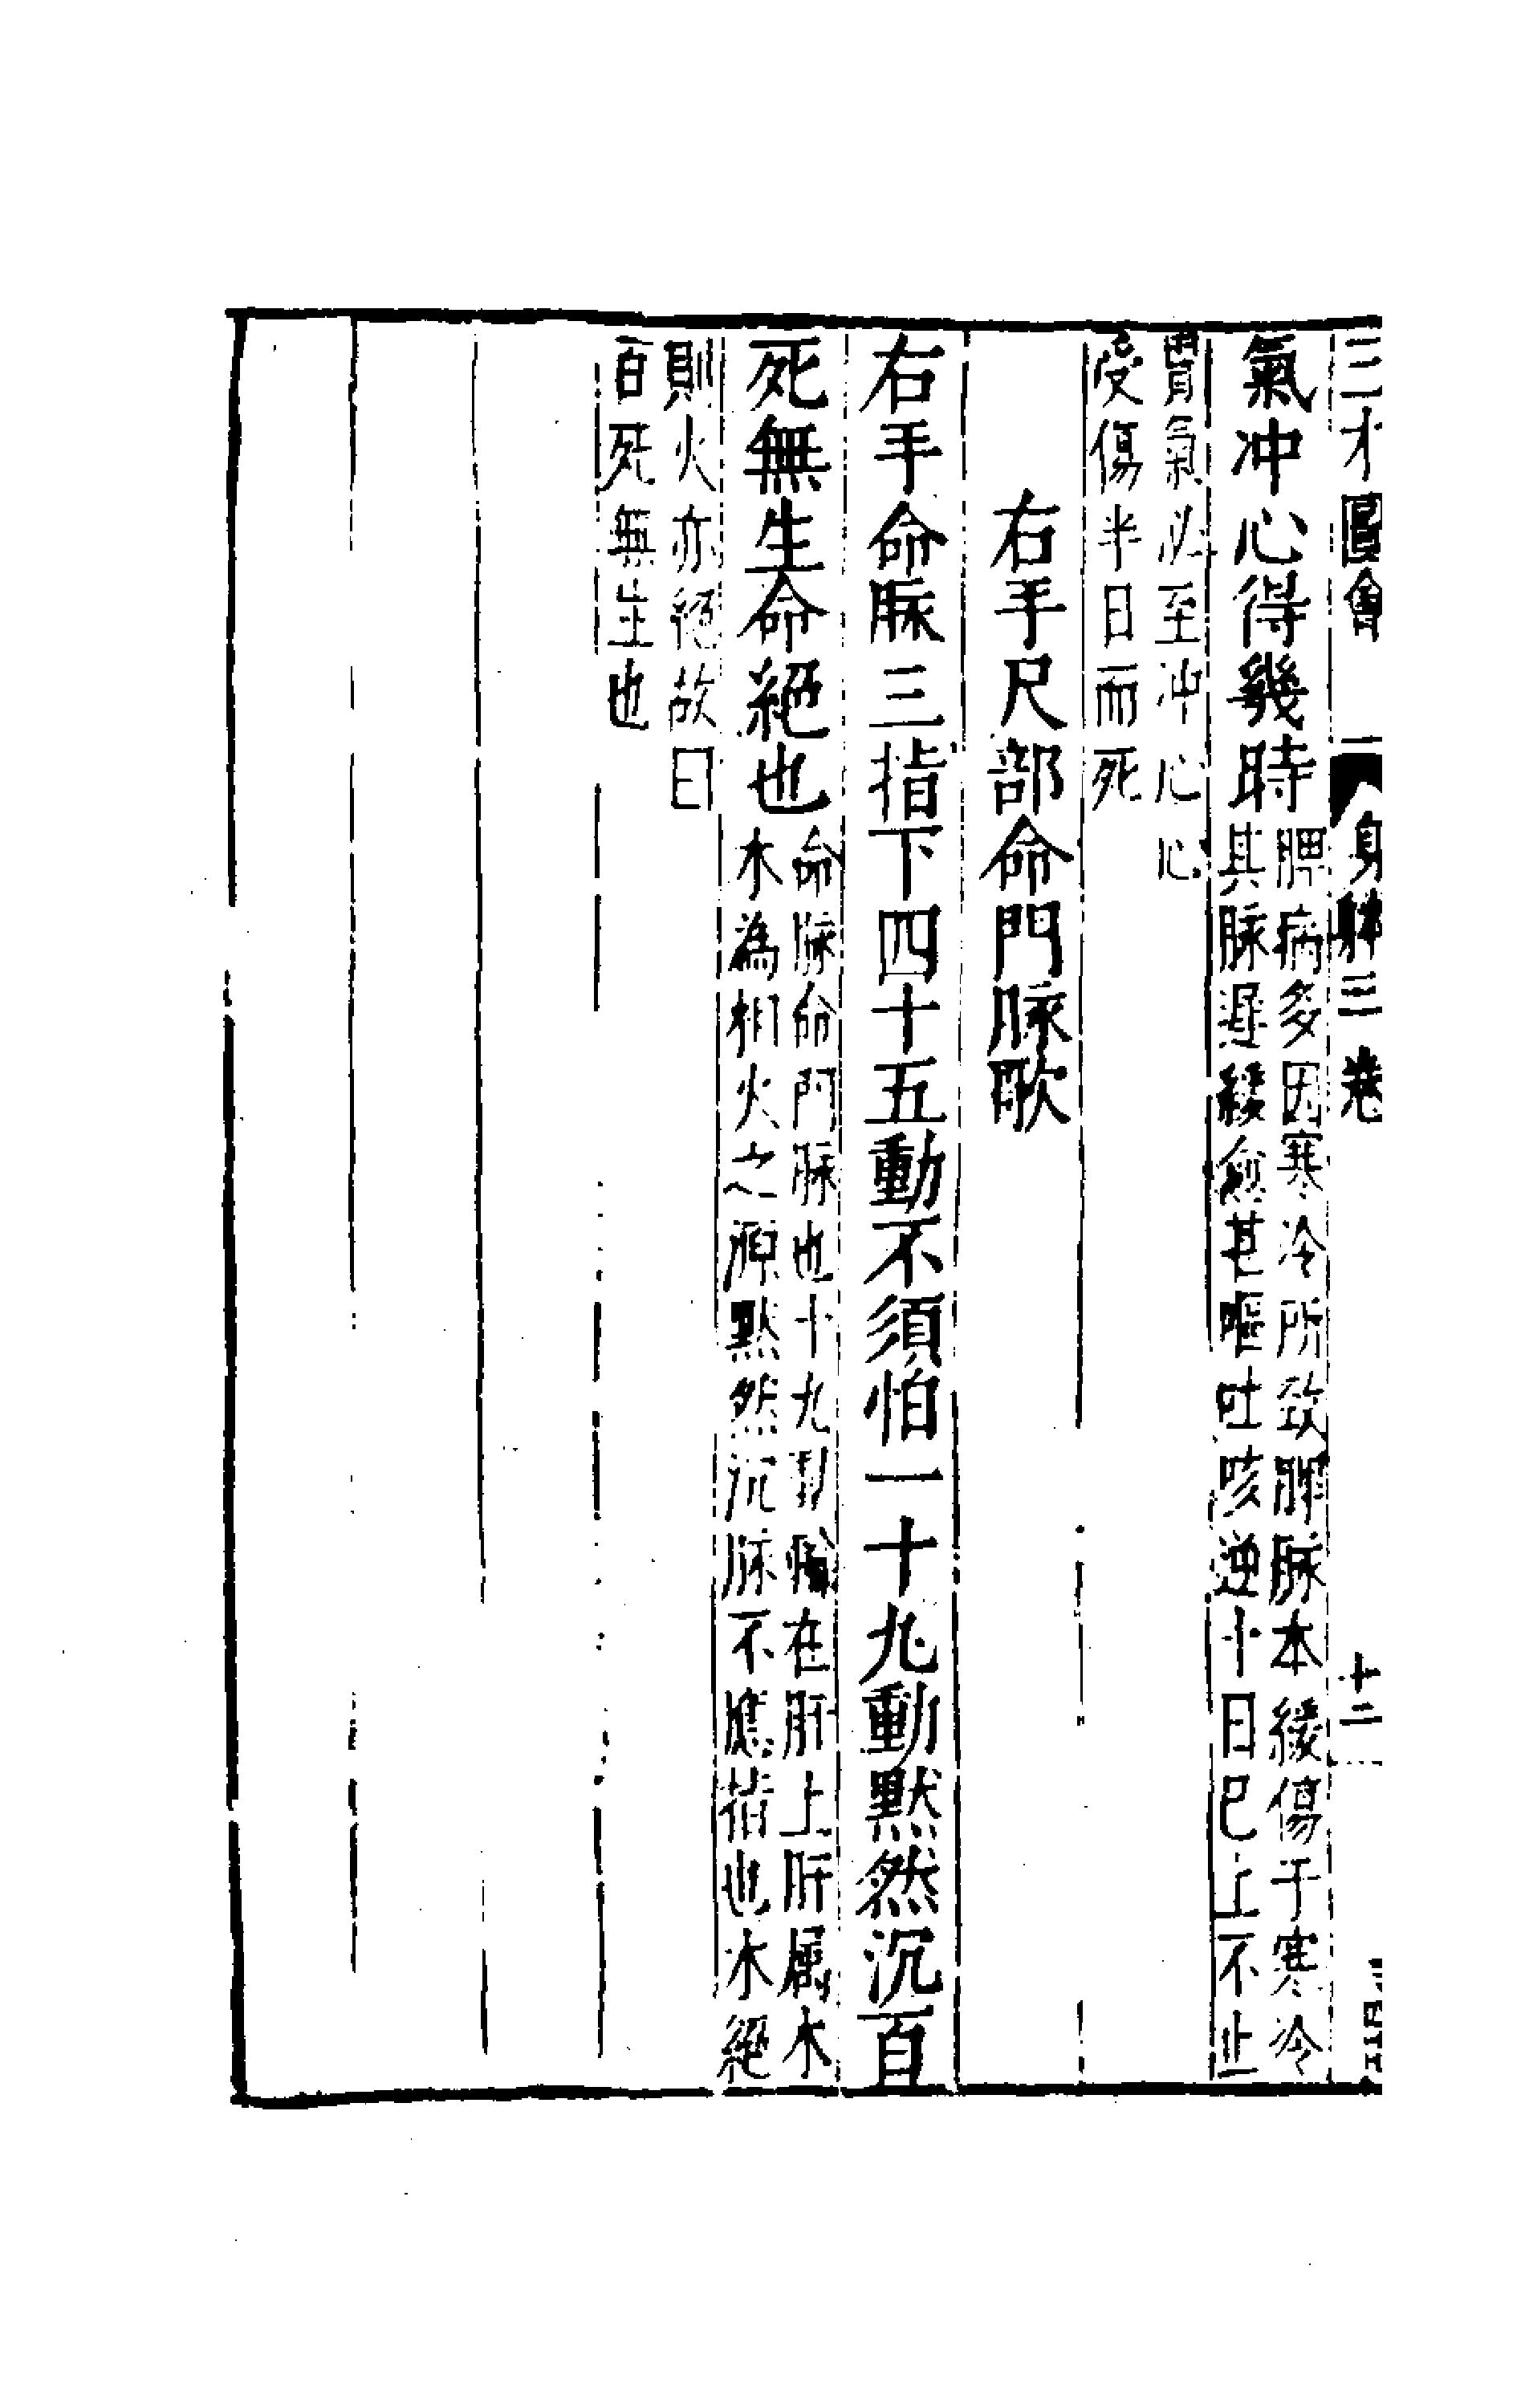 三才圖會
身體三卷
十二
氣冲心得幾時
脾病多因寒冷所致脾脉本緩傷于寒冷
其脉遲緩愈甚嘔吐咳逆十日已上不止
胃氣必至冲心心
受傷半日而死
右手尺部命門脉歌
右手命脉三指下四十五動不須怕一十九動黙然沉百
死無生命絕也
命脉命門脉也十九動
在肝上肝属木
木為相火之源黙然沉脉不應指也木絕
則火亦絕故曰
百死無生也